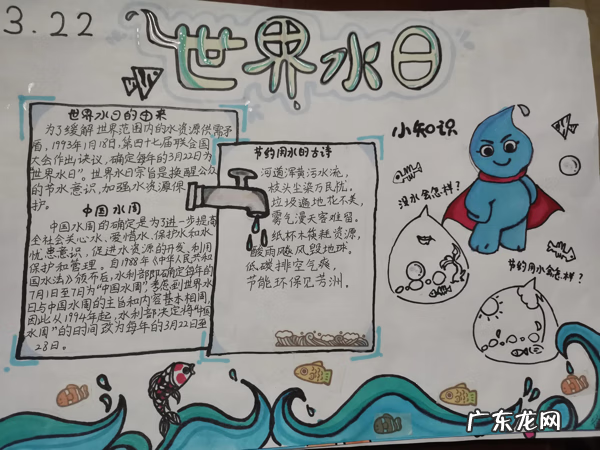 3.22
世界水日
世界水日的由来
为了缓解世界范围内的水资源供需矛
盾,1993年1月18日,第四十七届联合国
大会作出决议,确定每年的3月22日为
世界水日"。世界水日宗旨是唤醒公众
的节水意识,加强水资源保
护。
中国水周
中国水周的确定是为了进一步提高
全社会关心水、爱惜水、保护水和水
忧患意识,促进水资源的开发、利用
保护和管理。自1988年《中华人民共和
国水法》颁布后,水利部即确定每年的
7月1日至7日为"中国水周",考虑到世界水
日与中国水周的主旨和内容基本相同,
因此从1994年起,水利部决定将"中国
水周"的时间改为每年的3月22日至
28日。
节约用水的古诗
河道浑黄污水流,
枝头尘染万民忧。
垃圾遍地花不美,
雾气漫天客难留。
纸杯木筷耗资源,
酸雨飓风毁地球。
低碳排空气爽,
节能环保见芳洲。
小知识
没水会怎样?
节约用水会怎样?
广东龙网